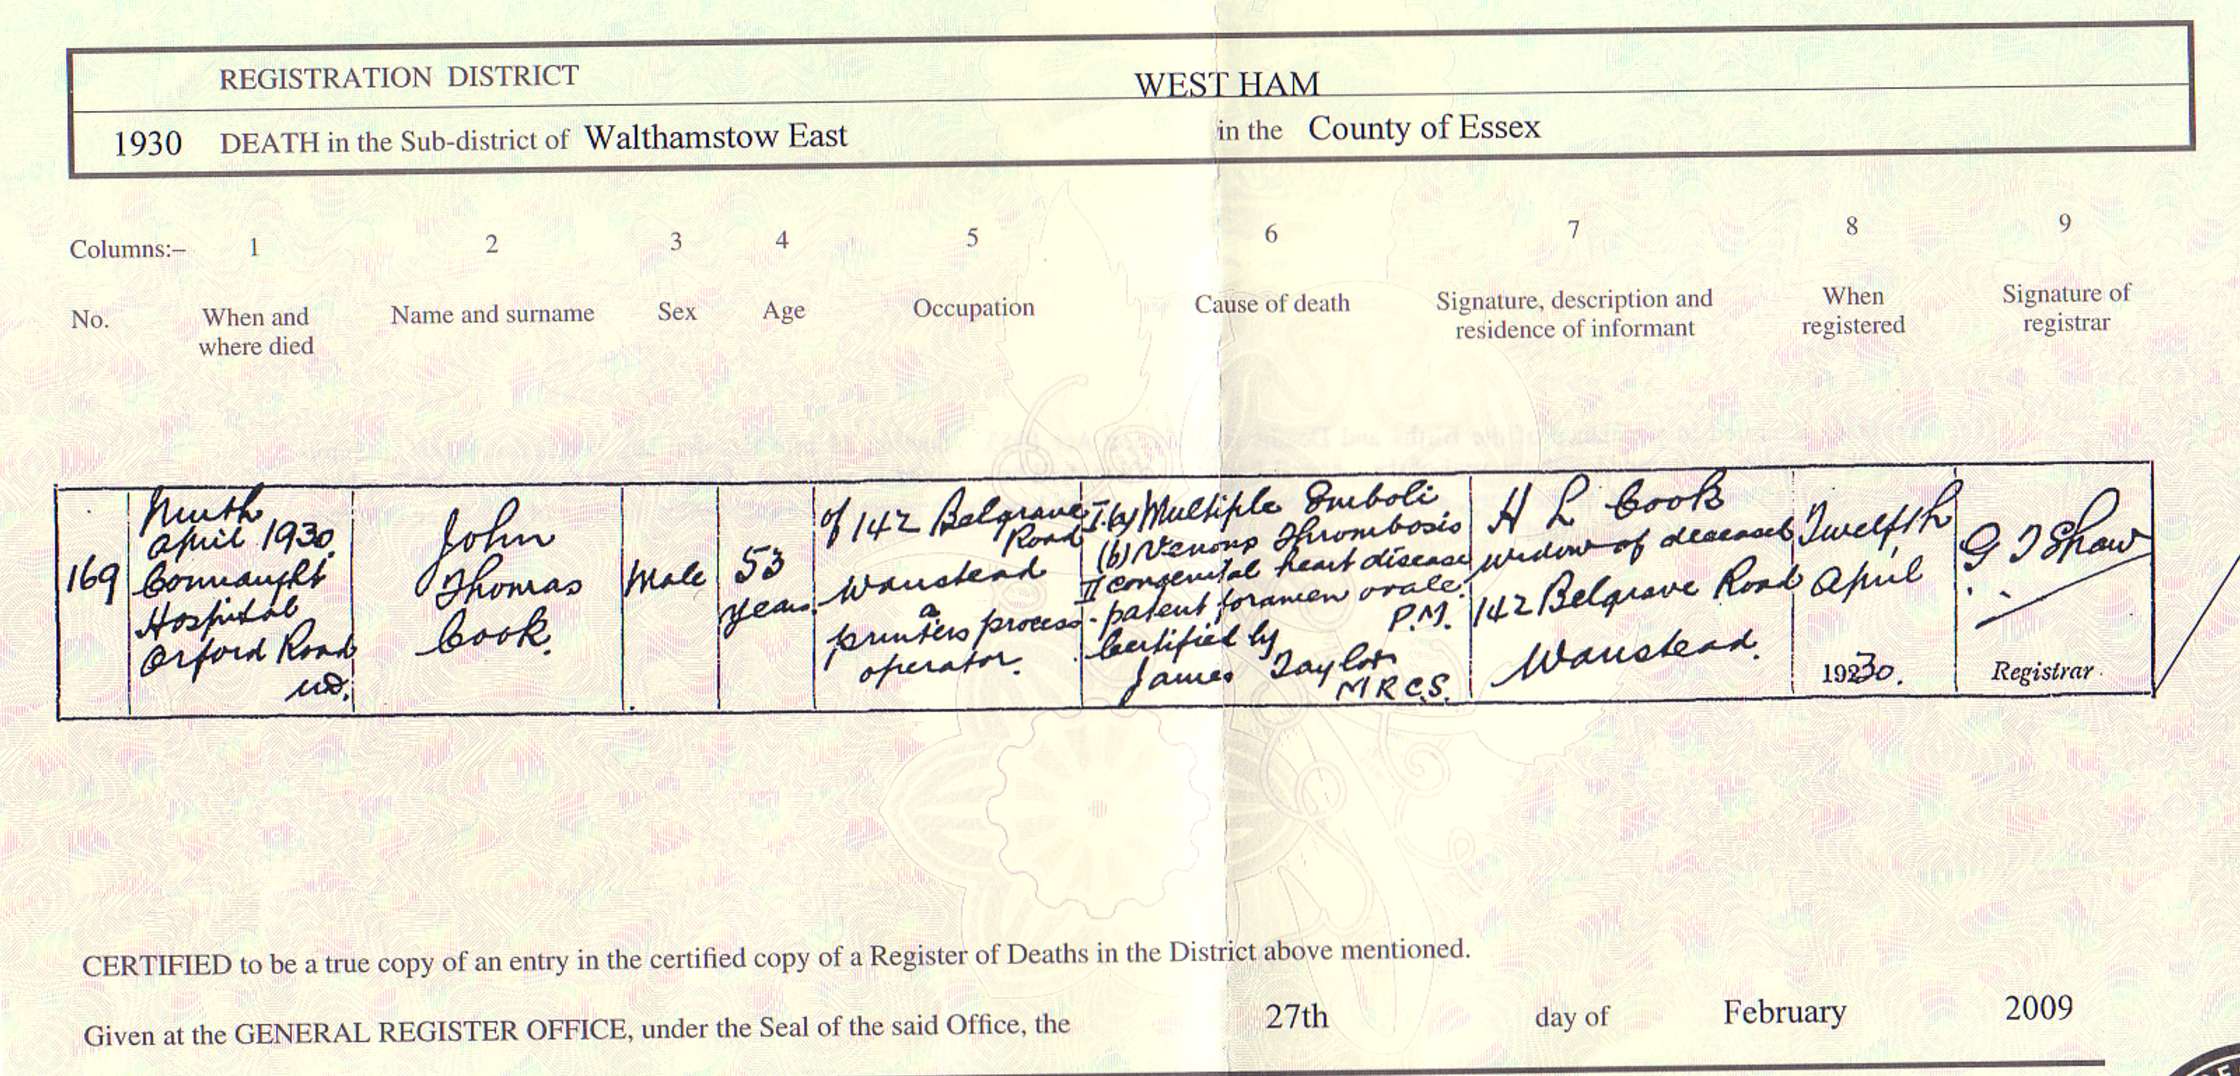 REGISTRATION DISTRICT WEST HAM
1930 DEATH in the Sub-district of Walthamstow East in the County of Essex
Columns:– 1 2 3 4 5 6 7 8 9
No. When and where died Name and surname Sex Age Occupation Cause of death Signature, description and residence of informant When registered Signature of registrar
169
Ninth
April 1930
Connaught
Hospital
Orford Road
UD.
John
Thomas
Cook.
Male
53
years
of 142 Belgrave
Road
Wanstead
a
printers process
operator.
I.(a) Multiple Emboli
(b) Venous Thrombosis
II congenital heart disease
- patent foramen ovale.
P.M.
Certified by
James Taylor
M R C S.
H L Cook
widow of deceased
142 Belgrave Road
Wanstead.
Twelfth
April
1930.
G J Shaw
Registrar.
CERTIFIED to be a true copy of an entry in the certified copy of a Register of Deaths in the District above mentioned.
Given at the GENERAL REGISTER OFFICE, under the Seal of the said Office, the 27th day of February 2009